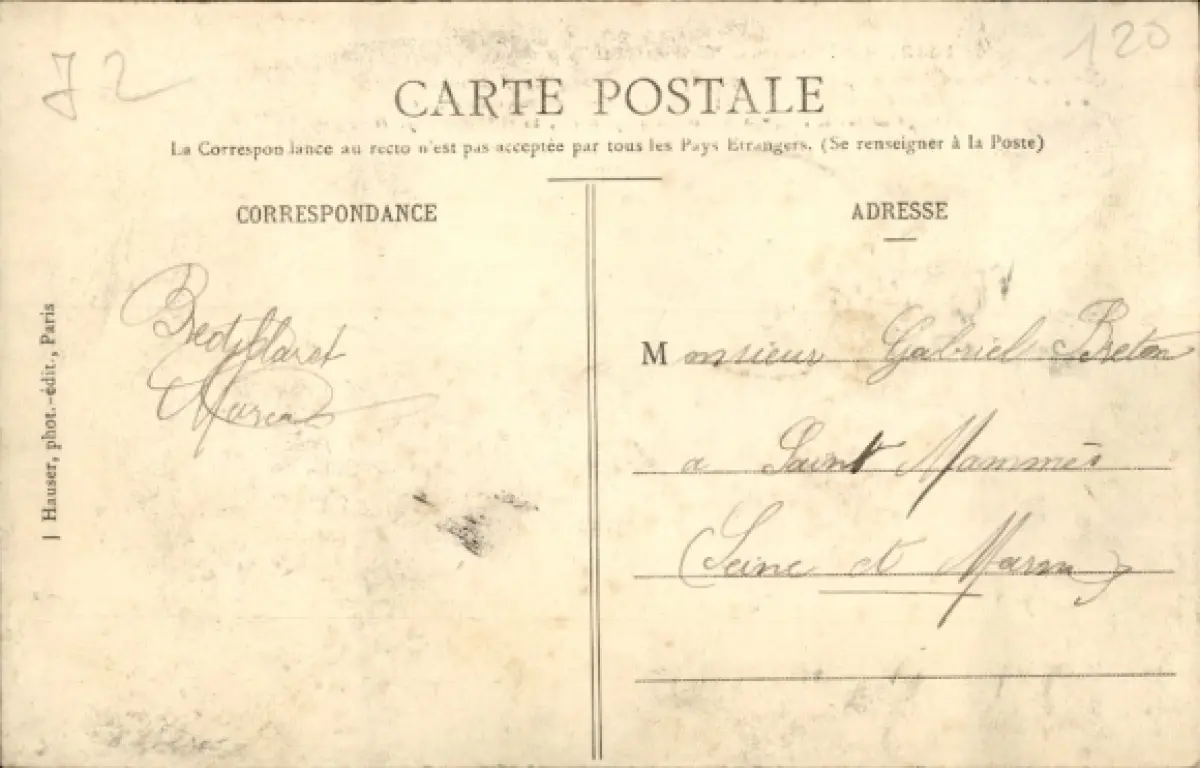 J 2
120
CARTE POSTALE
La Correspondance au recto n'est pas acceptée par tous les Pays Etrangers. (Se renseigner à la Poste)
CORRESPONDANCE
J Hauser, phot.-édit., Paris
ADRESSE
Monsieur Gabriel Breton
a Saint Mammès
(Seine et Marne)